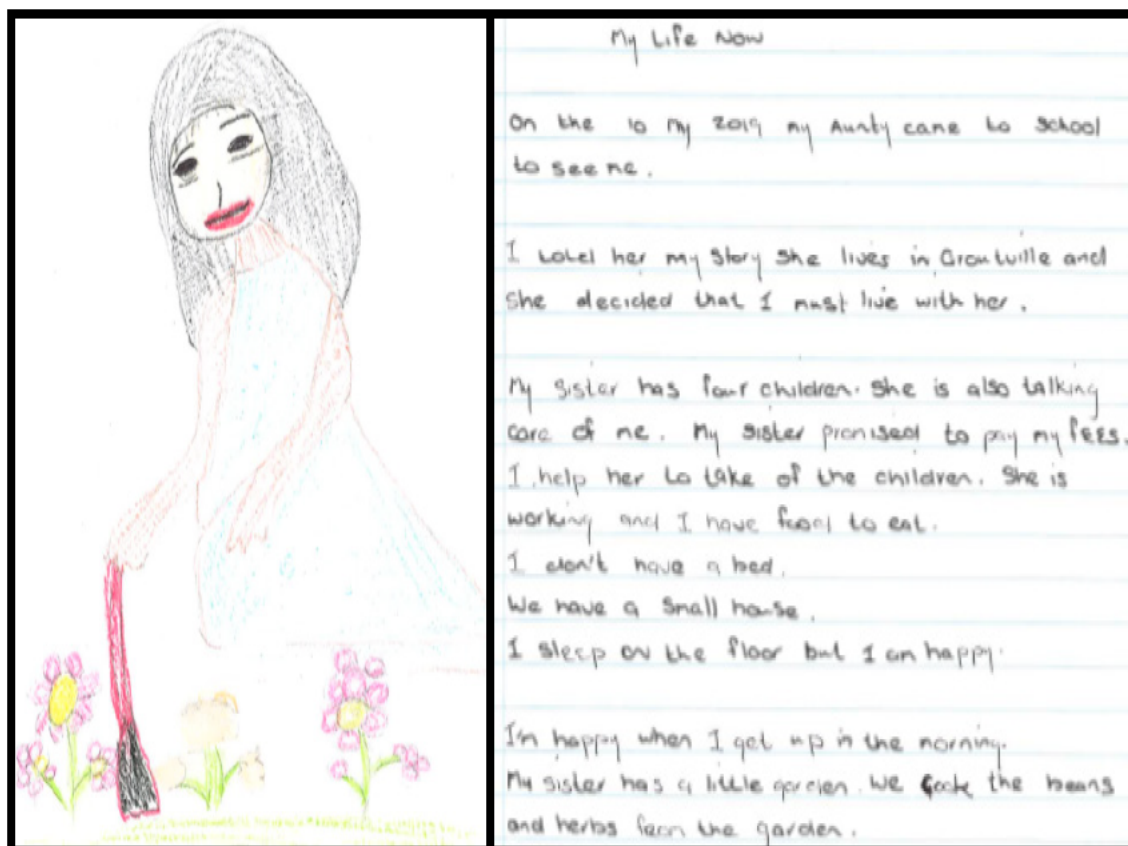 My Life Now
On the 10 my 2019 my Aunty came to school
to see me.
I toled her my story she lives in Groutville and
she decided that I must live with her.
My sister has four children. She is also talking
care of me. My sister promised to pay my fees.
I help her to take of the children. She is
working and I have food to eat.
I don't have a bed.
We have a small house.
I sleep on the floor but I am happy.
I'm happy when I get up in the morning.
My sister has a little garden. We cook the beans
and herbs from the garden.